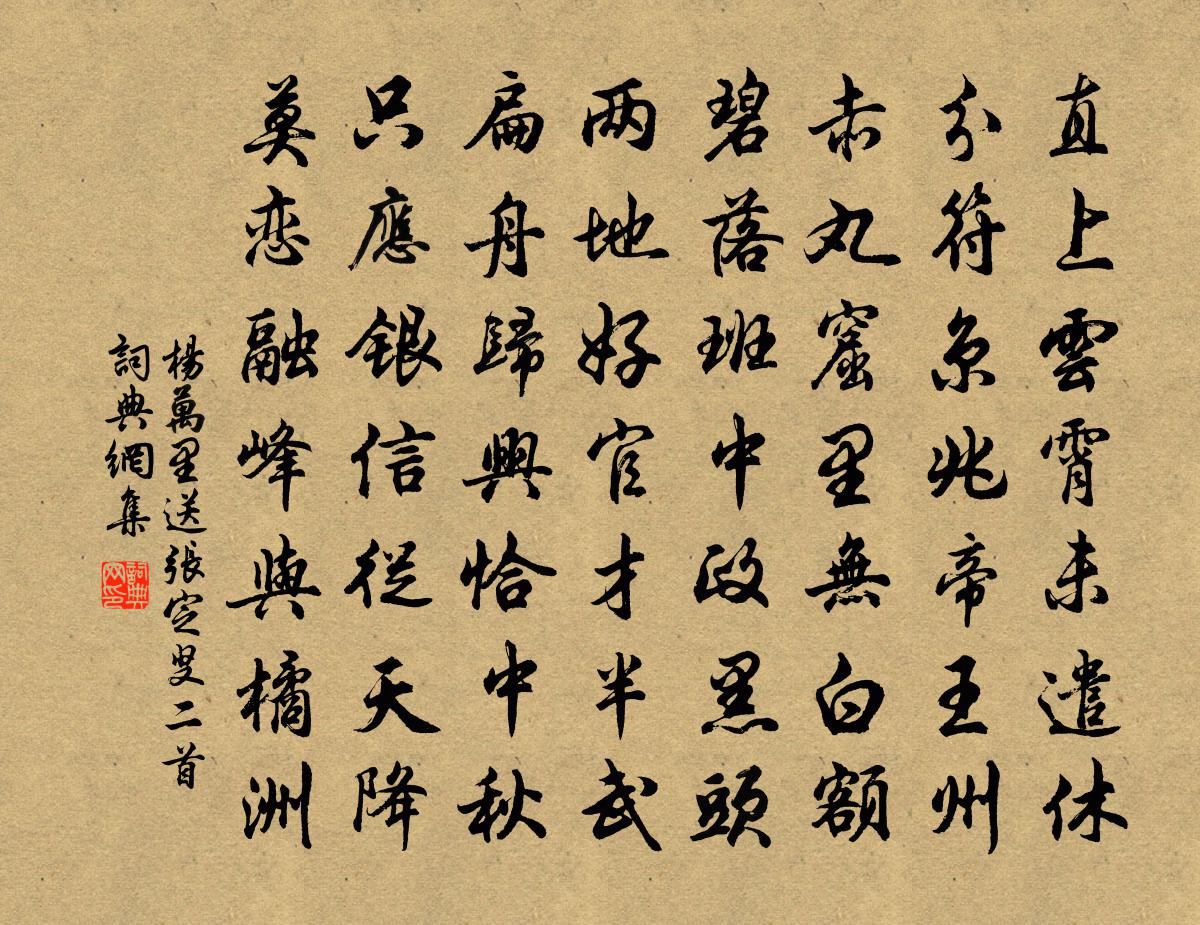 直上雲霄未遣休
分符京兆帝王州
赤丸窟里無白額
碧落班中政黑頭
两地好官才半武
扁舟歸興恰中秋
只應銀信從天降
莫恋融峰與橘洲
楊萬里送張定叟二首
詞典網集
詞典网印